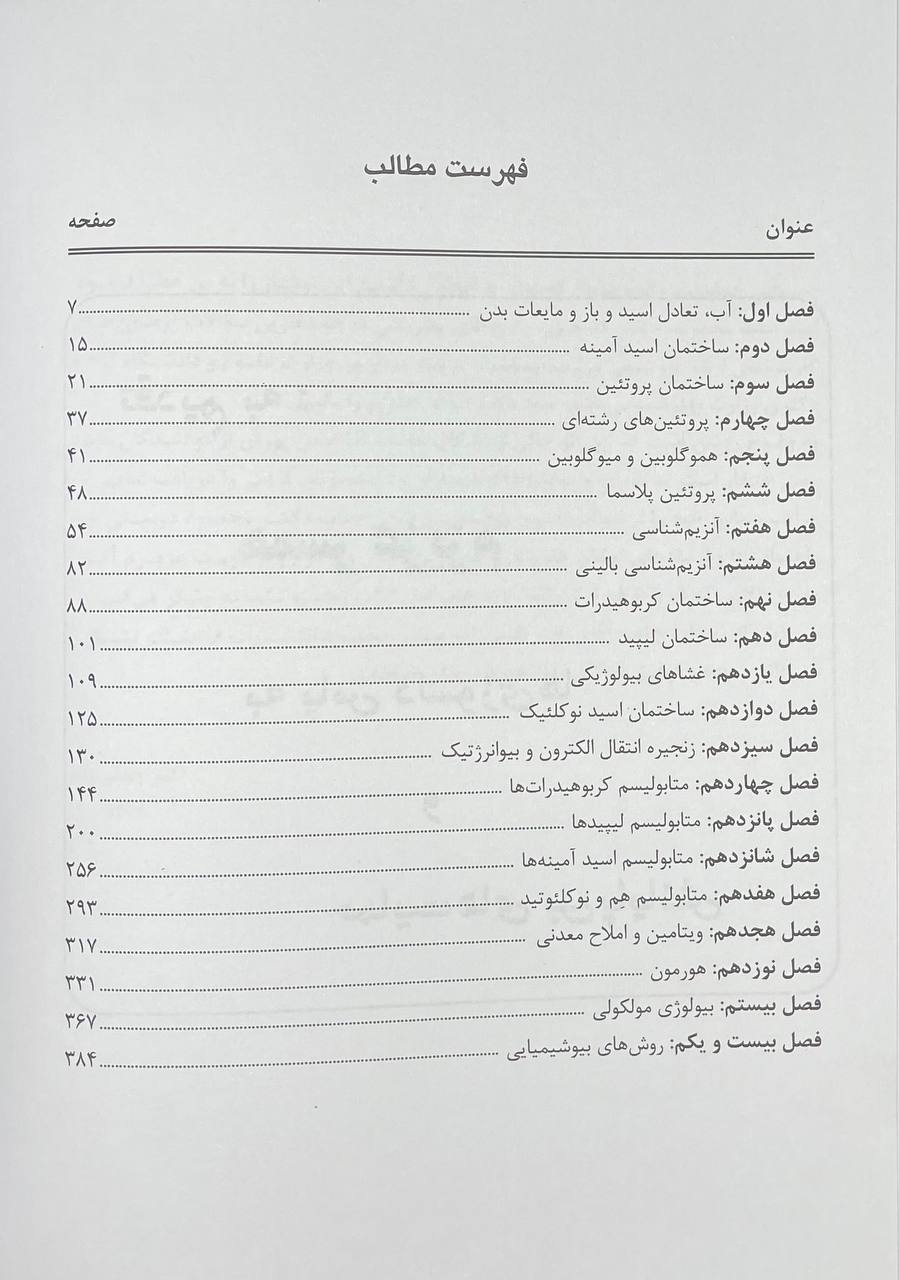 فهرست مطالب
عنوان صفحه
فصل اول: آب، تعادل اسید و باز و مایعات بدن ۷
فصل دوم: ساختمان اسید آمینه ۱۵
فصل سوم: ساختمان پروتئین ۲۱
فصل چهارم: پروتئین‌های رشته‌ای ۳۷
فصل پنجم: هموگلوبین و میوگلوبین ۴۱
فصل ششم: پروتئین پلاسما ۴۸
فصل هفتم: آنزیم‌شناسی ۵۴
فصل هشتم: آنزیم‌شناسی بالینی ۸۲
فصل نهم: ساختمان کربوهیدرات ۸۸
فصل دهم: ساختمان لیپید ۱۰۱
فصل یازدهم: غشاهای بیولوژیکی ۱۰۹
فصل دوازدهم: ساختمان اسید نوکلئیک ۱۲۵
فصل سیزدهم: زنجیره انتقال الکترون و بیوانرژتیک ۱۳۰
فصل چهاردهم: متابولیسم کربوهیدرات‌ها ۱۴۴
فصل پانزدهم: متابولیسم لیپیدها ۲۰۰
فصل شانزدهم: متابولیسم اسید آمینه‌ها ۲۵۶
فصل هفدهم: متابولیسم هِم و نوکلئوتید ۲۹۳
فصل هجدهم: ویتامین و املاح معدنی ۳۱۷
فصل نوزدهم: هورمون ۳۳۱
فصل بیستم: بیولوژی مولکولی ۳۶۷
فصل بیست و یکم: روش‌های بیوشیمیایی ۳۸۴